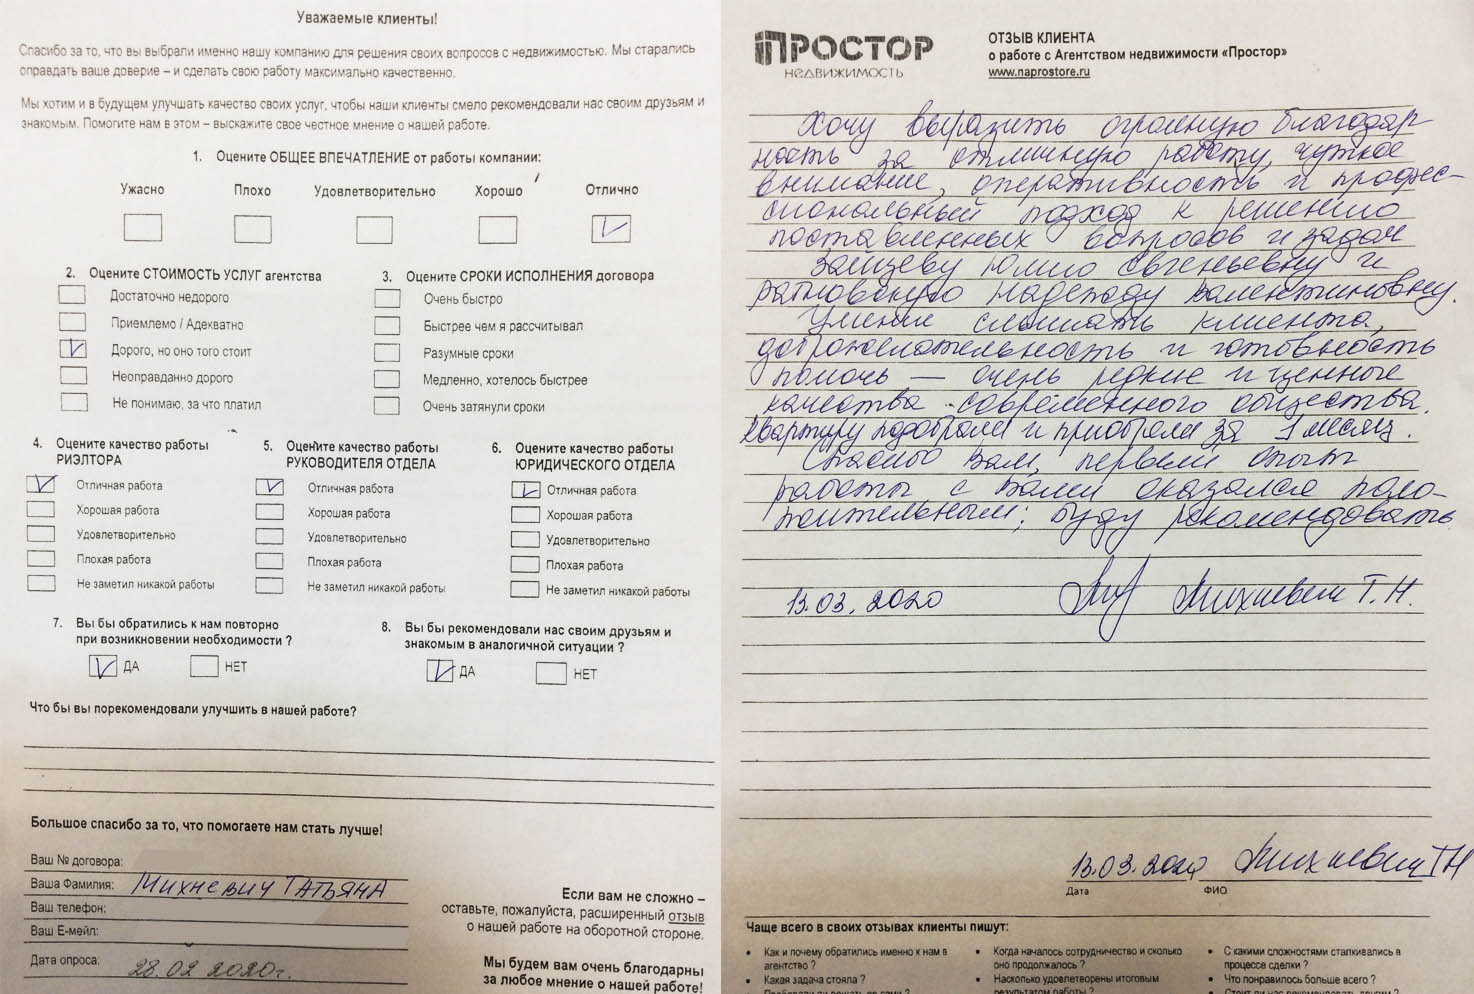 Уважаемые клиенты!
Спасибо за то, что вы выбрали именно нашу компанию для решения своих вопросов с недвижимостью. Мы старались
оправдать ваше доверие – и сделать свою работу максимально качественно.
Мы хотим и в будущем улучшать качество своих услуг, чтобы наши клиенты смело рекомендовали нас своим друзьям и
знакомым. Помогите нам в этом – выскажите свое честное мнение о нашей работе.
1. Оцените ОБЩЕЕ ВПЕЧАТЛЕНИЕ от работы компании:
Ужасно Плохо Удовлетворительно Хорошо Отлично
2. Оцените СТОИМОСТЬ УСЛУГ агентства
Достаточно недорого
Приемлемо / Адекватно
Дорого, но оно того стоит
Неоправданно дорого
Не понимаю, за что платил
3. Оцените СРОКИ ИСПОЛНЕНИЯ договора
Очень быстро
Быстрее чем я рассчитывал
Разумные сроки
Медленно, хотелось быстрее
Очень затянули сроки
4. Оцените качество работы
РИЭЛТОРА
Отличная работа
Хорошая работа
Удовлетворительно
Плохая работа
Не заметил никакой работы
5. Оцените качество работы
РУКОВОДИТЕЛЯ ОТДЕЛА
Отличная работа
Хорошая работа
Удовлетворительно
Плохая работа
Не заметил никакой работы
6. Оцените качество работы
ЮРИДИЧЕСКОГО ОТДЕЛА
Отличная работа
Хорошая работа
Удовлетворительно
Плохая работа
Не заметил никакой работы
7. Вы бы обратились к нам повторно
при возникновении необходимости ?
ДА НЕТ
8. Вы бы рекомендовали нас своим друзьям и
знакомым в аналогичной ситуации ?
ДА НЕТ
Что бы вы порекомендовали улучшить в нашей работе?
Большое спасибо за то, что помогаете нам стать лучше!
Ваш № договора:
Ваша Фамилия: Михневич Татьяна
Ваш телефон:
Ваш Е-мейл:
Дата опроса: 28.02 2020г.
Если вам не сложно –
оставьте, пожалуйста, расширенный отзыв
о нашей работе на оборотной стороне.
Мы будем вам очень благодарны
за любое мнение о нашей работе!
ПРОСТОР
НЕДВИЖИМОСТЬ
ОТЗЫВ КЛИЕНТА
о работе с Агентством недвижимости «Простор»
www.naprostore.ru
Хочу выразить огромную благодар
ность за отличную работу, чуткое
внимание, оперативность и профес-
сиональный подход к решению
поставленных вопросов и задач
Зайцеву Юлию Евгеньевну и
Надежду Валентиновну.
Умение слышать клиента,
доброжелательность и готовность
помочь — очень редкие и ценные
качества современного общества.
Квартиру подобрали и приобрели за 1 месяц.
Спасибо Вам, первый опыт
работы с Вами оказался поло-
жительным; буду рекомендовать
13.03.2020 Михневич Т.Н.
13.03.2020 Михневич ТН
Дата ФИО
Чаще всего в своих отзывах клиенты пишут:
• Как и почему обратились именно к нам в
агентство ?
• Какая задача стояла ?
• Когда началось сотрудничество и сколько
оно продолжалось ?
• Насколько удовлетворены итоговым
результатом работы ?
• С какими сложностями сталкивались в
процессе сделки ?
• Что понравилось больше всего ?